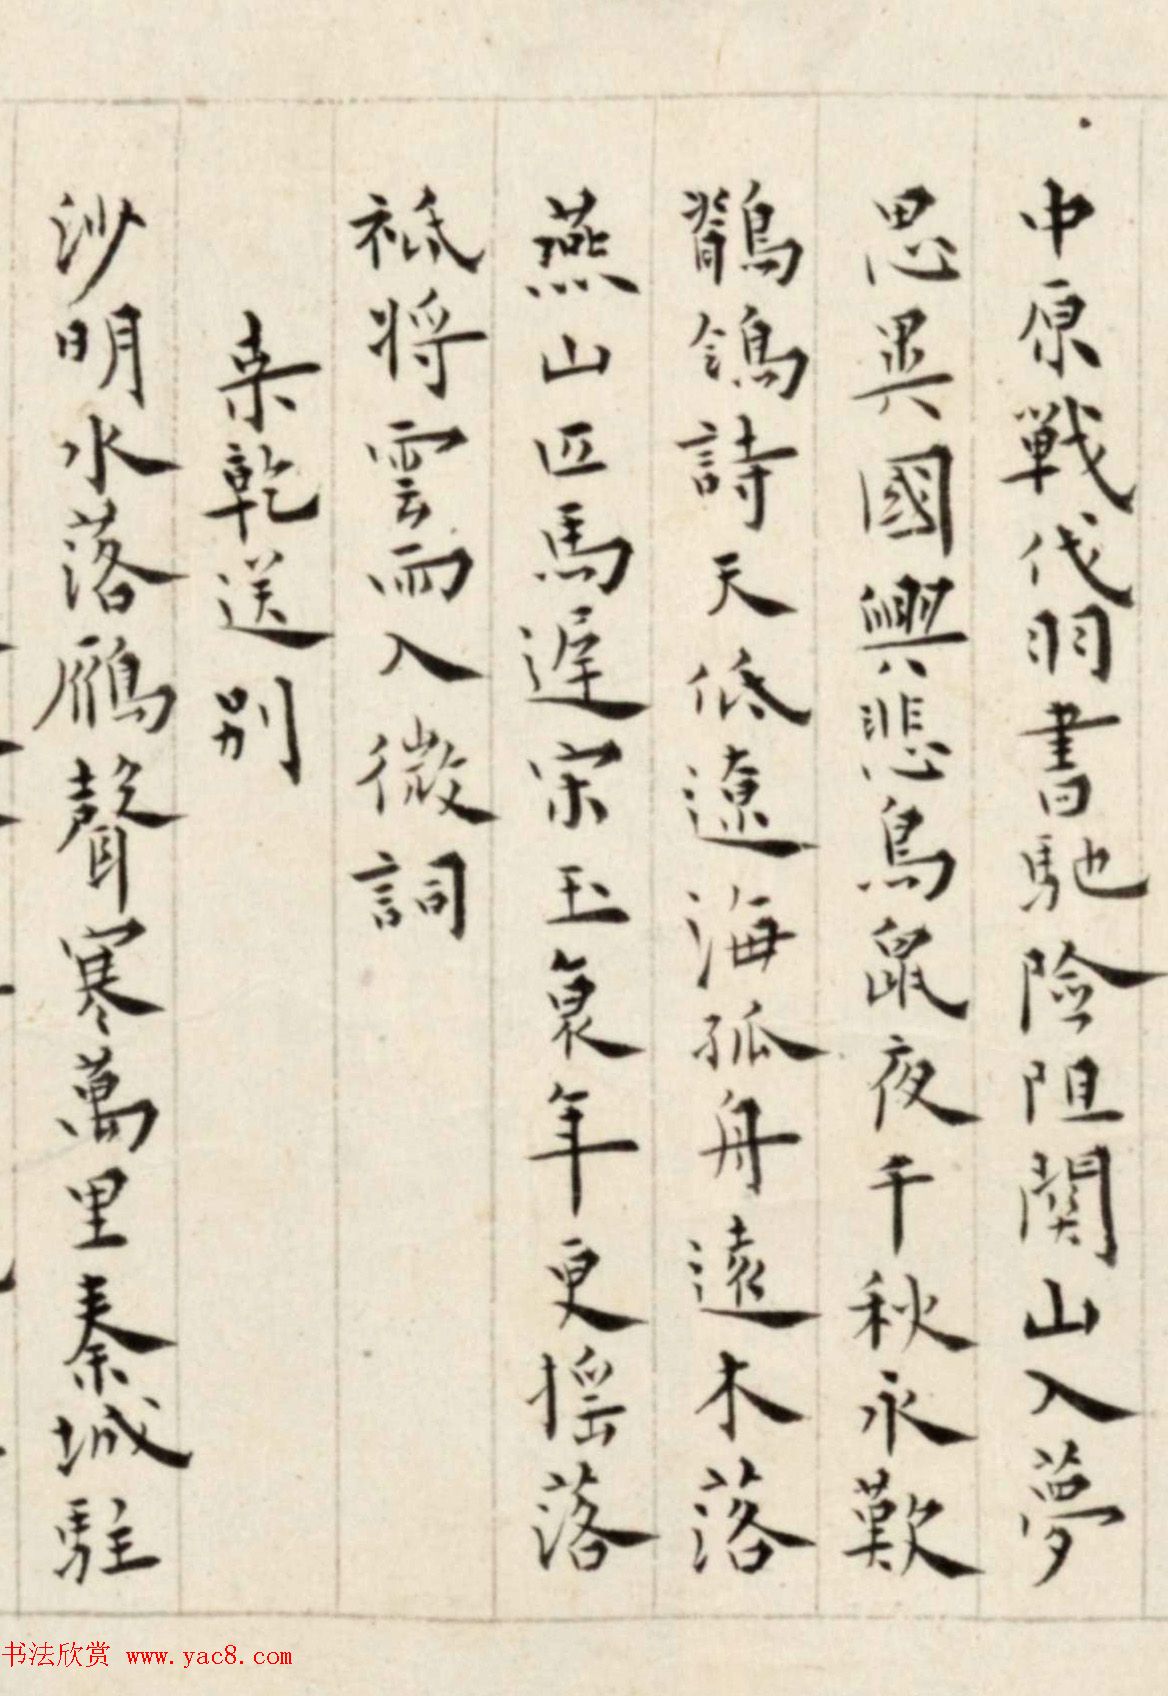 中原戰伐羽書馳險阻関山入夢
思異國興悲鳥鼠夜千秋永歎
鶺鴒詩天低遼海孤舟遠木落
燕山匹馬遲宋玉衰年更揺落
祗将雲雨入微詞
来乾送别
沙明水落鴈聲寒萬里秦城駐
书法欣赏 www.yac8.com